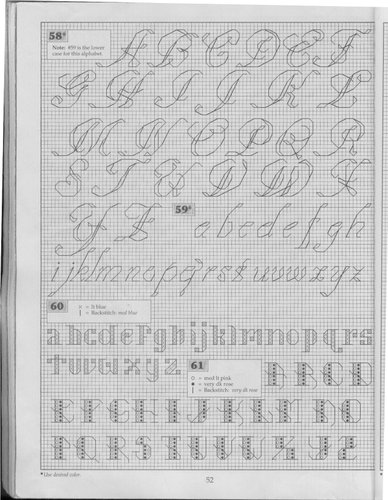 58*
Note: #59 is the lower
case for this alphabet.
A B C D E F
G H I J K L
M N O P Q R
S T U V W X
Y Z
59*
a b c d e f g h
i j k l m n o p q r s t u v w x y z
60
× = lt blue
| = Backstitch: med blue
a b c d e f g h i j k l m n o p q r s
t u v w x y z
61
O = med lt pink
● = very dk rose
| = Backstitch: very dk rose
A B C D
E F G H I J K L M N O
P Q R S T U V W X Y Z
* Use desired color.
52